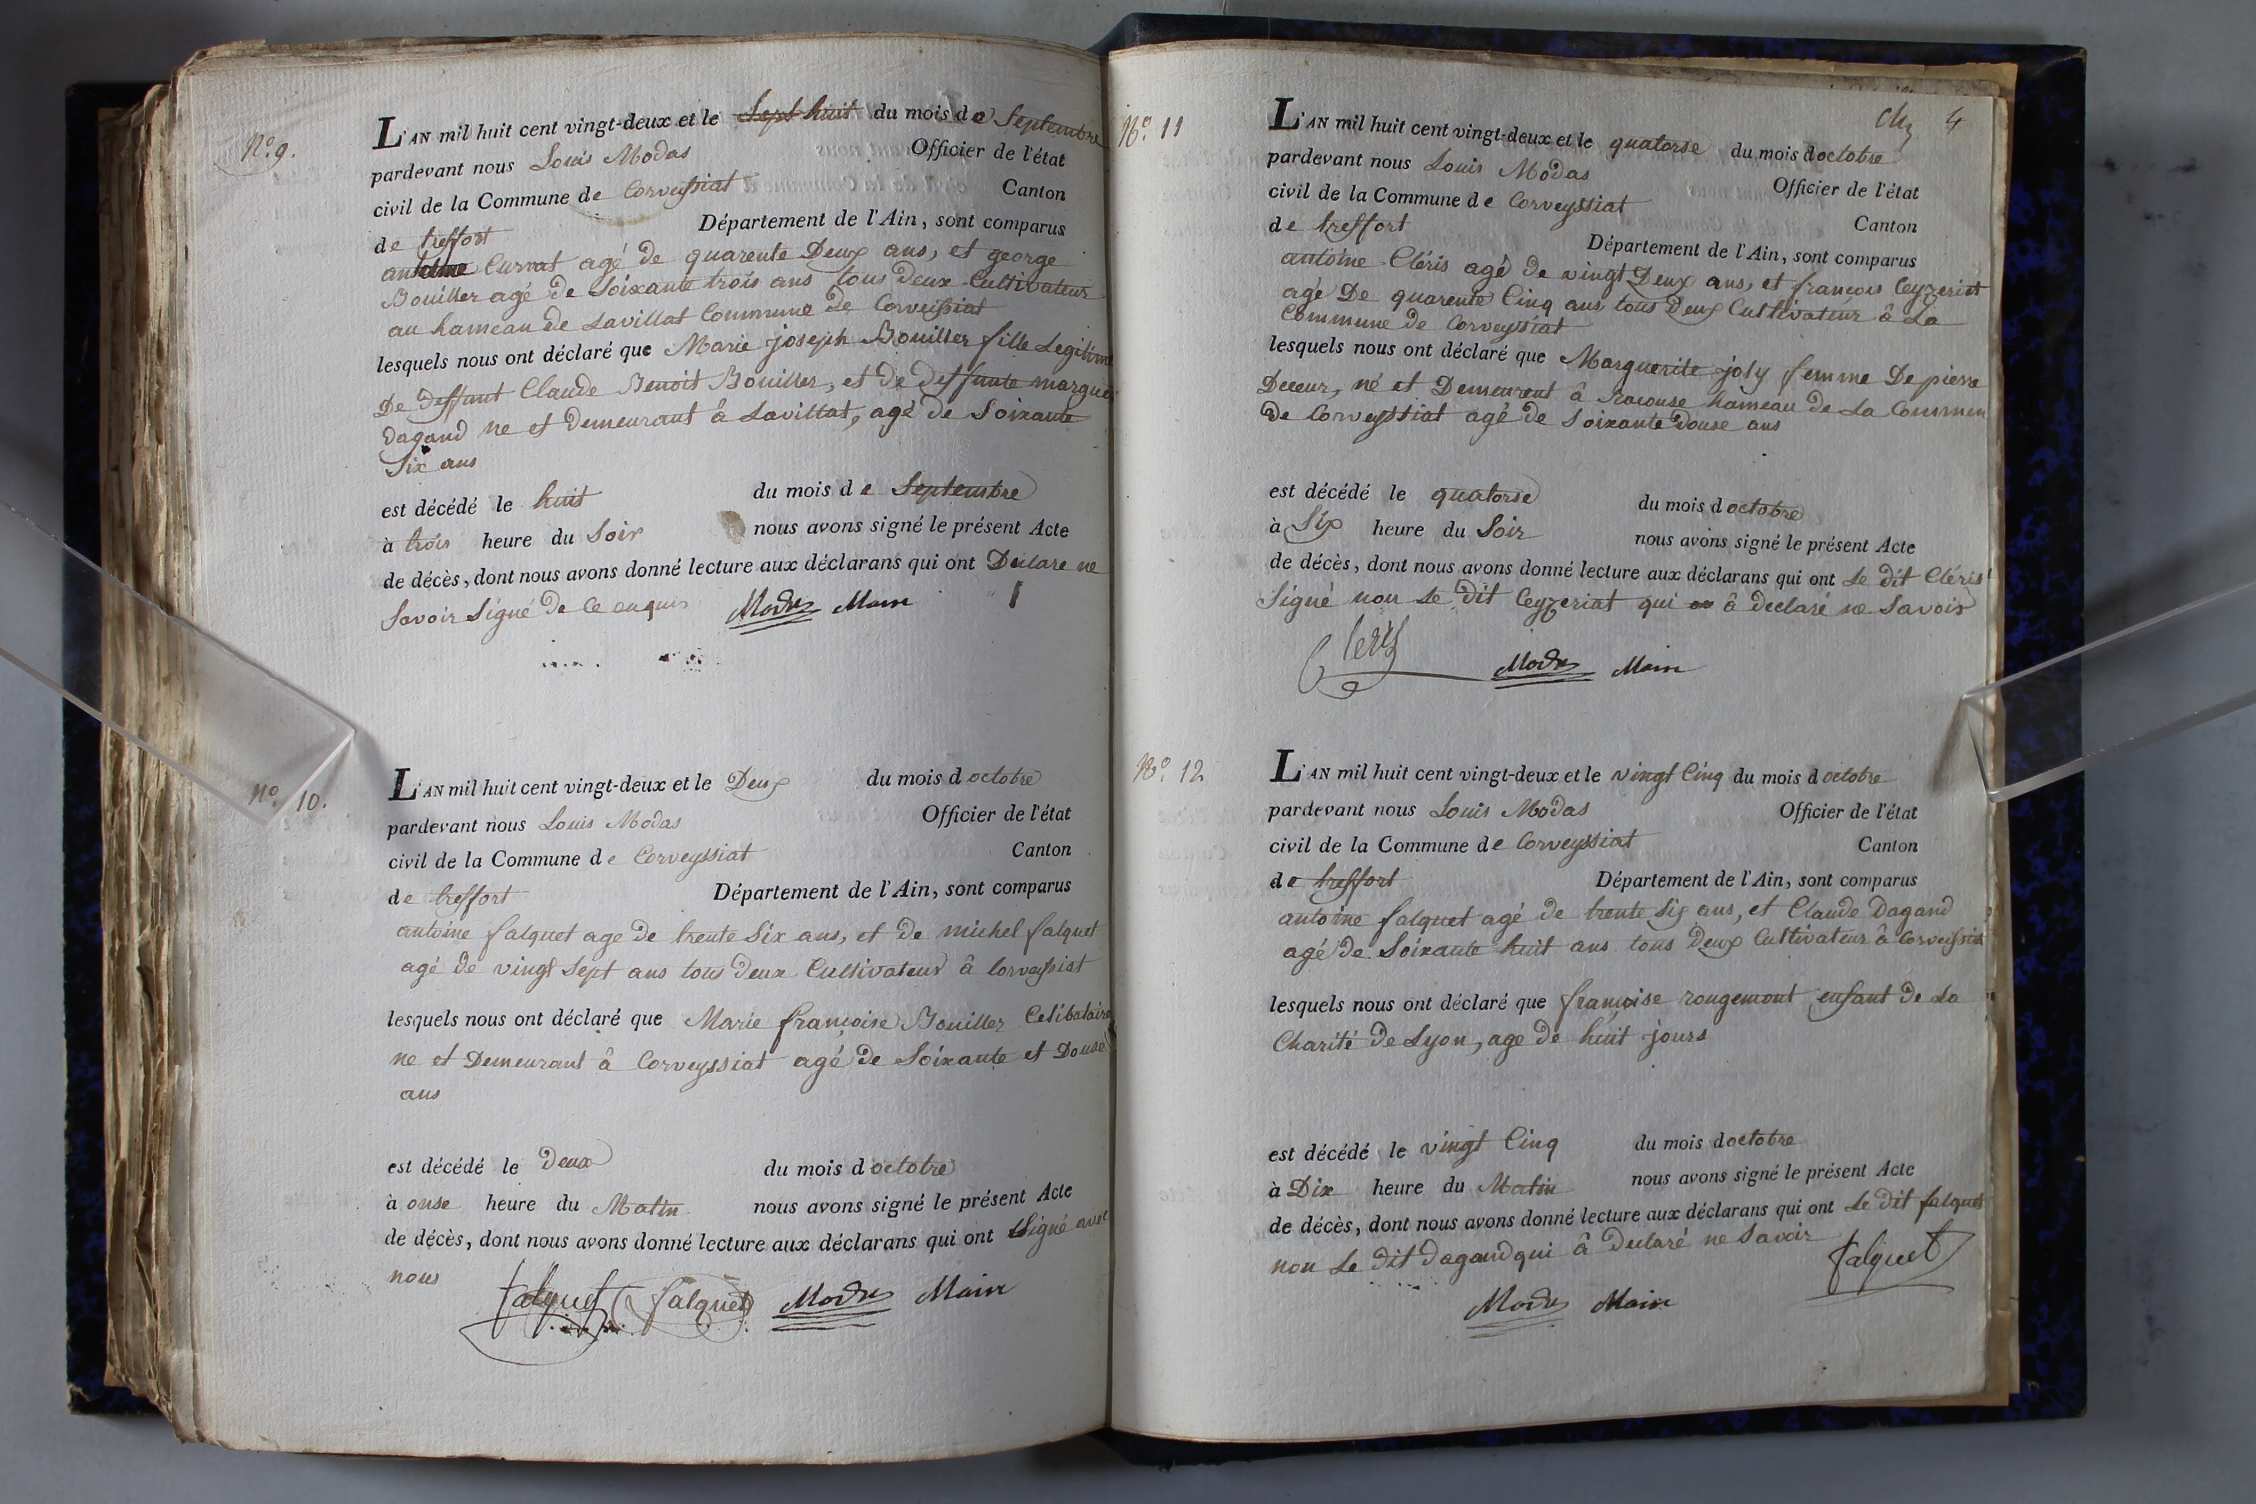 N.o 9.
L'AN mil huit cent vingt-deux et le Sept huit du mois de Septembre
pardevant nous Louis Modas Officier de l'état
civil de la Commune de Corveissiat Canton
de treffort Département de l'Ain, sont comparus
antoine Curvat agé de quarente Deux ans, et george
Bouiller agé de Soixante trois ans tous deux Cultivateur
au hameau de Lavillat Commune de Corveissiat
lesquels nous ont déclaré que Marie joseph Bouiller fille Legitime
De deffunt Claude Benoit Bouiller, et de deffunte
dagand ne et demeurant â Lavillat, agé de Soixante
Six ans
est décédé le huit du mois de Septembre
à trois heure du Soir nous avons signé le présent Acte
de décès, dont nous avons donné lecture aux déclarans qui ont Declare ne
Savoir Signé de ce enquis Modas Main
N.o 10.
L'AN mil huit cent vingt-deux et le Deux du mois d octobre
pardevant nous Louis Modas Officier de l'état
civil de la Commune de Corveyssiat Canton
de treffort Département de l'Ain, sont comparus
antoine falquet age de trente Six ans, et de michel falquet
agé de vingt Sept ans tous deux Cultivateur â Corveissiat
lesquels nous ont déclaré que Marie françoise Bouiller Celibataire
ne et Demeurant â Corveyssiat agé de Soixante et Douse
ans
est décédé le Deux du mois d octobre
à onse heure du Matin nous avons signé le présent Acte
de décès, dont nous avons donné lecture aux déclarans qui ont Signé avec
nous falquet falquet Modas Main
4
N.o 11
L'AN mil huit cent vingt-deux et le quatorse du mois d octobre
pardevant nous Louis Modas Officier de l'état
civil de la Commune de Corveyssiat Canton
de treffort Département de l'Ain, sont comparus
antoine Cléris agé de vingt Deux ans, et francois Ceyzeriat
agé De quarente Cinq ans tous Deux Cultivateur â La
Commune de Corveyssiat
lesquels nous ont déclaré que Marguerite joly femme De pierre
né et Demeurent â Racouse hameau de La Commun
de Corveyssiat agé de Soixante douse ans
est décédé le quatorse du mois d octobre
à Six heure du Soir nous avons signé le présent Acte
de décès, dont nous avons donné lecture aux déclarans qui ont Le dit Cléris
Signé non Le dit Ceyzeriat qui â declaré ne Savoir
Cleris Modas Main
N.o 12
L'AN mil huit cent vingt-deux et le vingt Cinq du mois d octobre
pardevant nous Louis Modas Officier de l'état
civil de la Commune de Corveyssiat Canton
de treffort Département de l'Ain, sont comparus
antoine falquet agé de trente Six ans, et Claude Dagand
agé de Soixante huit ans tous Deux Cultivateur â Corveissiat
lesquels nous ont déclaré que françoise rougemont enfant de La
Charité de Lyon, age de huit jours
est décédé le vingt Cinq du mois d octobre
à Dix heure du Matin nous avons signé le présent Acte
de décès, dont nous avons donné lecture aux déclarans qui ont Le dit falquet
non Le dit dagand qui â Declaré ne Savoir falquet
Modas Main